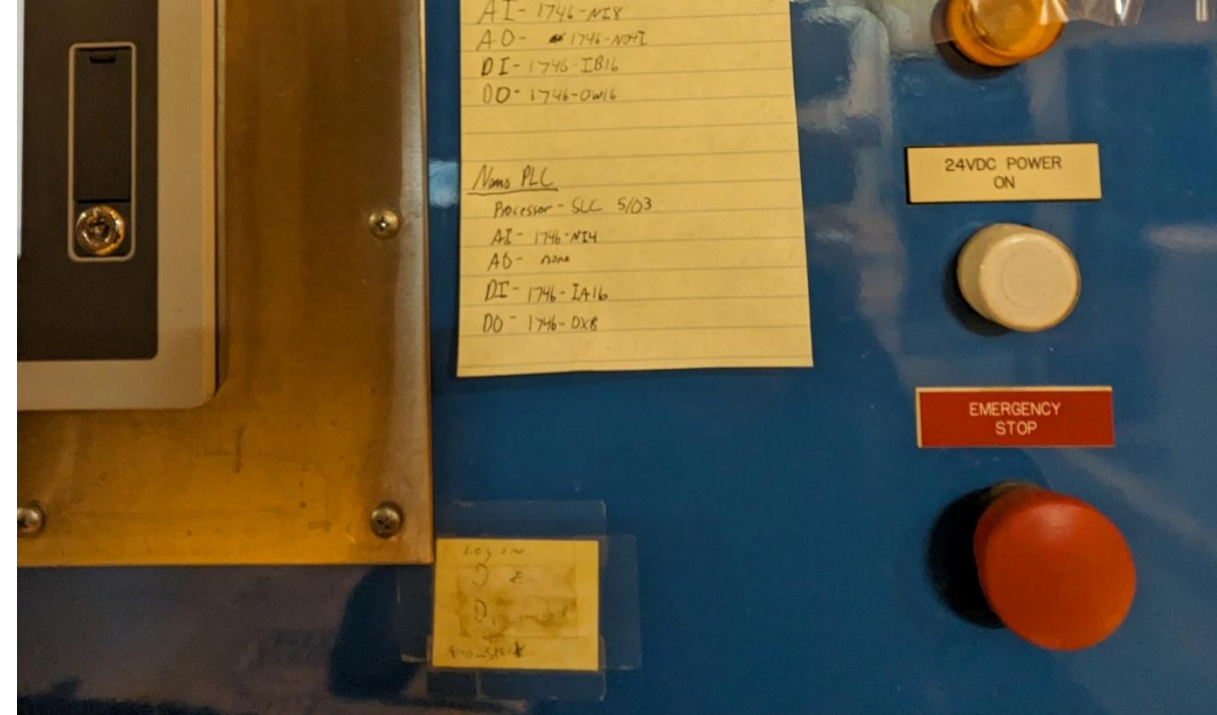 AI- 1746-NI8
AO- 1746-NO4I
DI- 1746-IB16
DO- 1746-OW16
Nano PLC
Processor - SLC 5/03
AI- 1746-NI4
AO- none
DI- 1746-IA16
DO- 1746-OX8
24VDC POWER
ON
EMERGENCY
STOP
Login